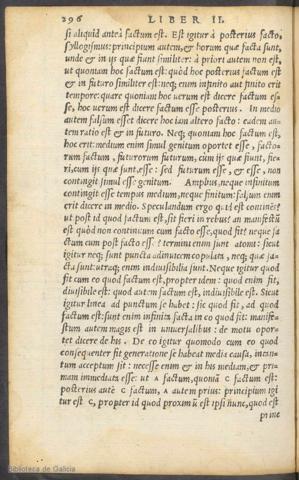 296 LIBER II.
si aliquid anteà factum est. Est igitur à posterius facto,
syllogismus: principium autem, & horum quæ facta sunt,
unde & in ijs quæ fiunt similiter: à priori autem non est,
ut quoniam hoc factum est: quòd hoc posterius factum est
& in futuro similiter est: neq; enim infinito aut finito erit
tempore: quare quoniam hoc uerum est dicere factum es
se, hoc uerum est dicere factum esse posterius. In medio
autem falsum esset dicere hoc iam altero facto: eadem au
tem ratio est & in futuro. Neq; quoniam hoc factum est,
hoc erit: medium enim simul genitum oportet esse, facto-
rum factum, futurorum futurum, cum ijs quæ fiunt, fie-
ri, cum ijs quæ sunt, esse: sed futurum esse, & esse, non
contingit simul esse genitum. Amplius, neque infinitum
contingit esse tempus medium, neque finitum: falsum enim
erit dicere in medio. Speculandum ergo quid est continẽs
ut post id quod factum est, sit fieri in rebus: an manifestũ
est quòd non continuum cum facto esse, quod fit? neque fa
ctum cum post facto esse: termini enim sunt atomi: sicut
igitur neq; sunt puncta adinuicem copulata, neq; quæ fa-
cta sunt: utraq; enim indiuisibilia sunt. Neque igitur quod
fit cum eo quod factum est, propter idem: quod enim fit,
diuisibile est: quod autem factum est, indiuisibile est. Sicut
igitur linea ad punctum se habet: sic quod fit, ad quod
factum est: sunt enim infinita facta in eo quod fit: manife-
stum autem magis est in uniuersalibus: de motu opor-
tet dicere de his. De eo igitur quomodo cum eo quod
consequenter fit generatione se habeat media causa, intan-
tum acceptum sit: necesse enim & in his medium, & pri-
mam immediata esse: ut A factum, quoniã C factum est:
posterius autẽ C factum, A autem prius: principium igi
tur est C, propter id quod proximũ est ipsi nunc, quod est
prins
Biblioteca de Galicia